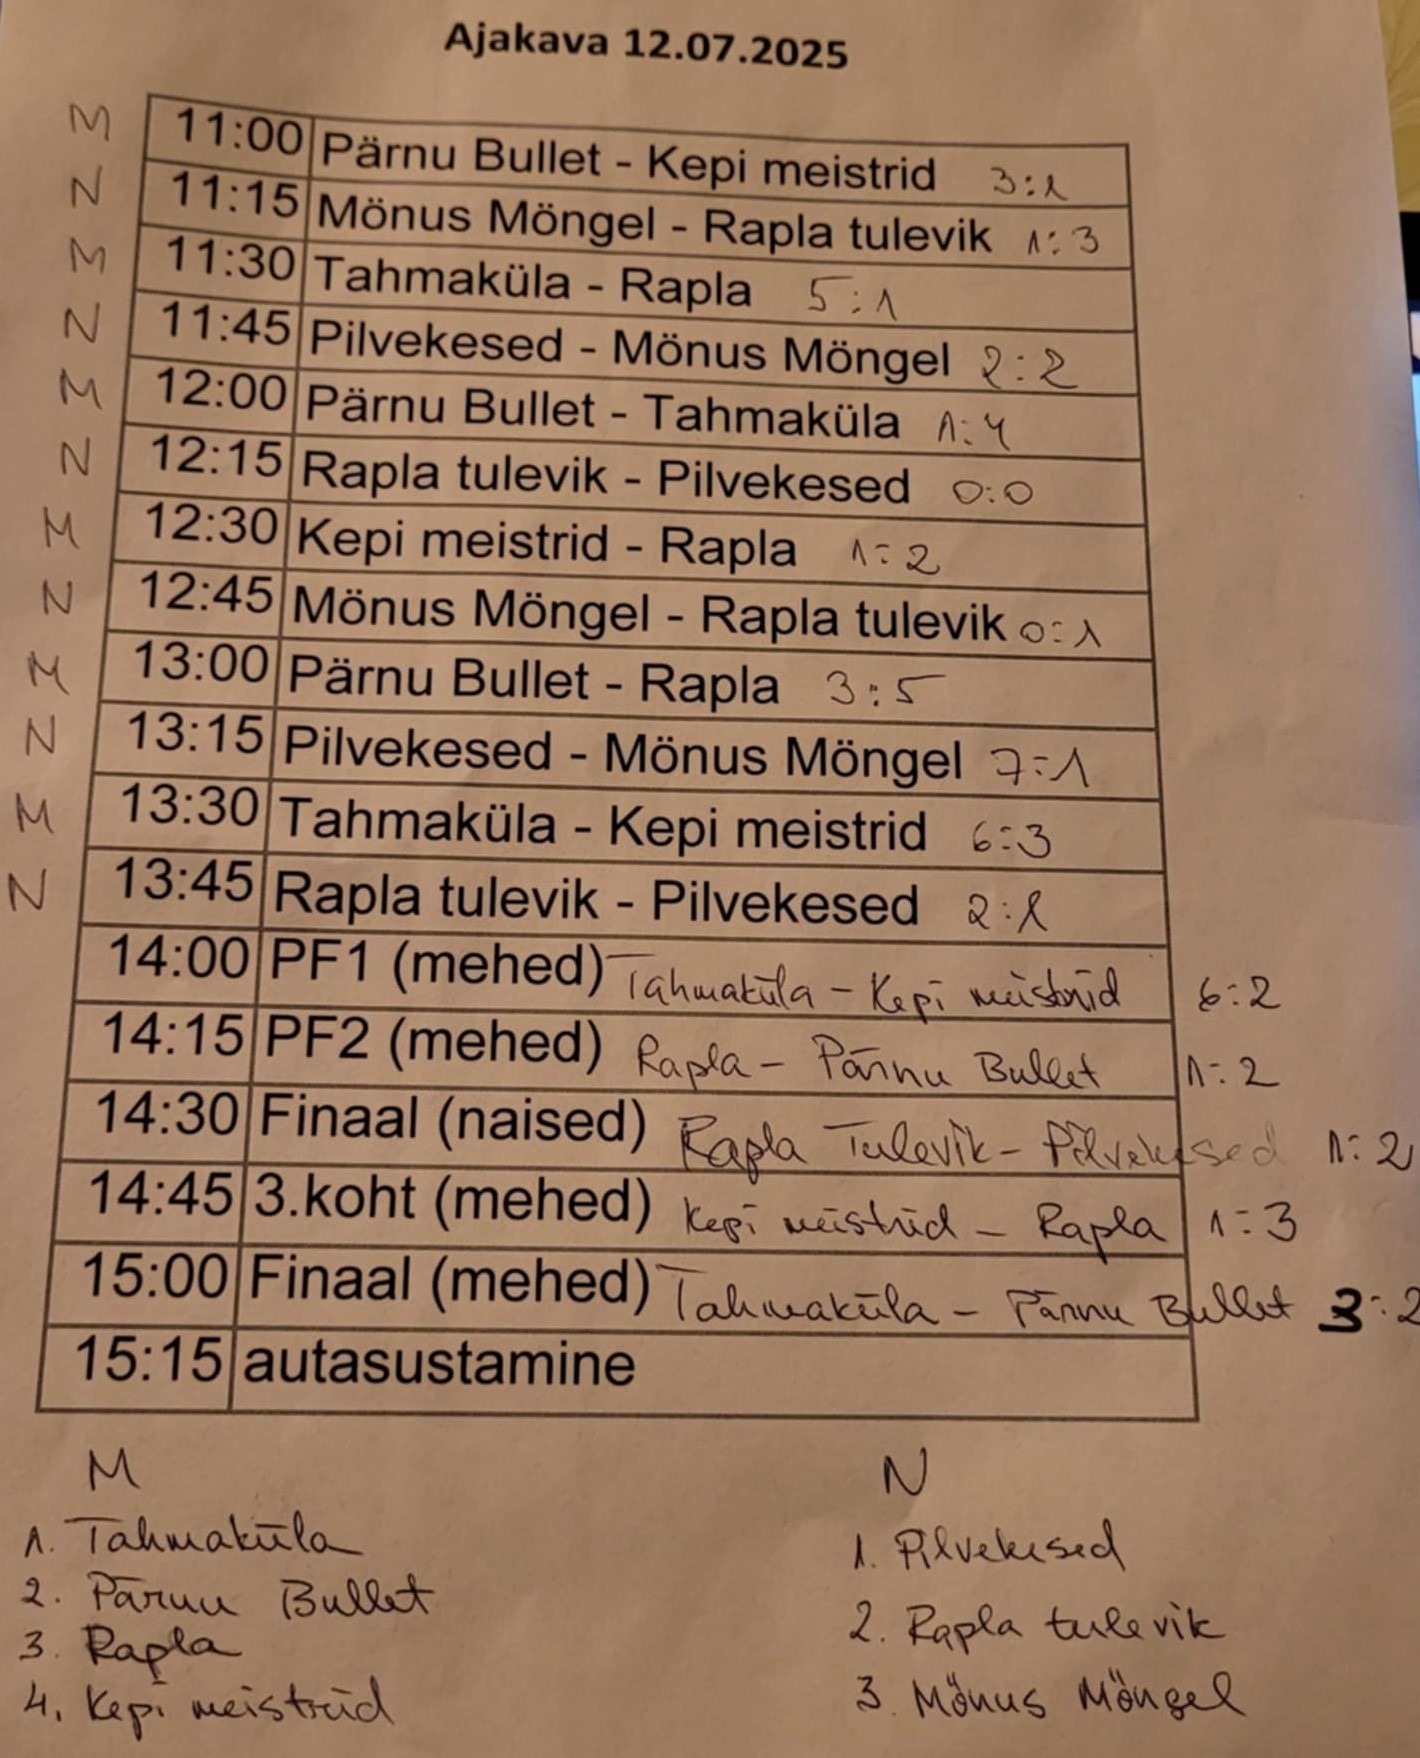 Ajakava 12.07.2025
M 11:00 Pärnu Bullet - Kepi meistrid 3:1
N 11:15 Mönus Möngel - Rapla tulevik 1:3
M 11:30 Tahmaküla - Rapla 5:1
N 11:45 Pilvekesed - Mönus Möngel 2:2
M 12:00 Pärnu Bullet - Tahmaküla 1:4
N 12:15 Rapla tulevik - Pilvekesed 0:0
M 12:30 Kepi meistrid - Rapla 1:2
N 12:45 Mönus Möngel - Rapla tulevik 0:1
M 13:00 Pärnu Bullet - Rapla 3:5
N 13:15 Pilvekesed - Mönus Möngel 7:1
M 13:30 Tahmaküla - Kepi meistrid 6:3
N 13:45 Rapla tulevik - Pilvekesed 2:1
14:00 PF1 (mehed) Tahmaküla - Kepi meistrid 6:2
14:15 PF2 (mehed) Rapla - Pärnu Bullet 1:2
14:30 Finaal (naised) Rapla Tulevik - Pilvekesed 1:2
14:45 3.koht (mehed) Kepi meistrid - Rapla 1:3
15:00 Finaal (mehed) Tahmaküla - Pärnu Bullet 3:2
15:15 autasustamine
M
1. Tahmaküla
2. Pärnu Bullet
3. Rapla
4. Kepi meistrid
N
1. Pilvekesed
2. Rapla tulevik
3. Mönus Möngel